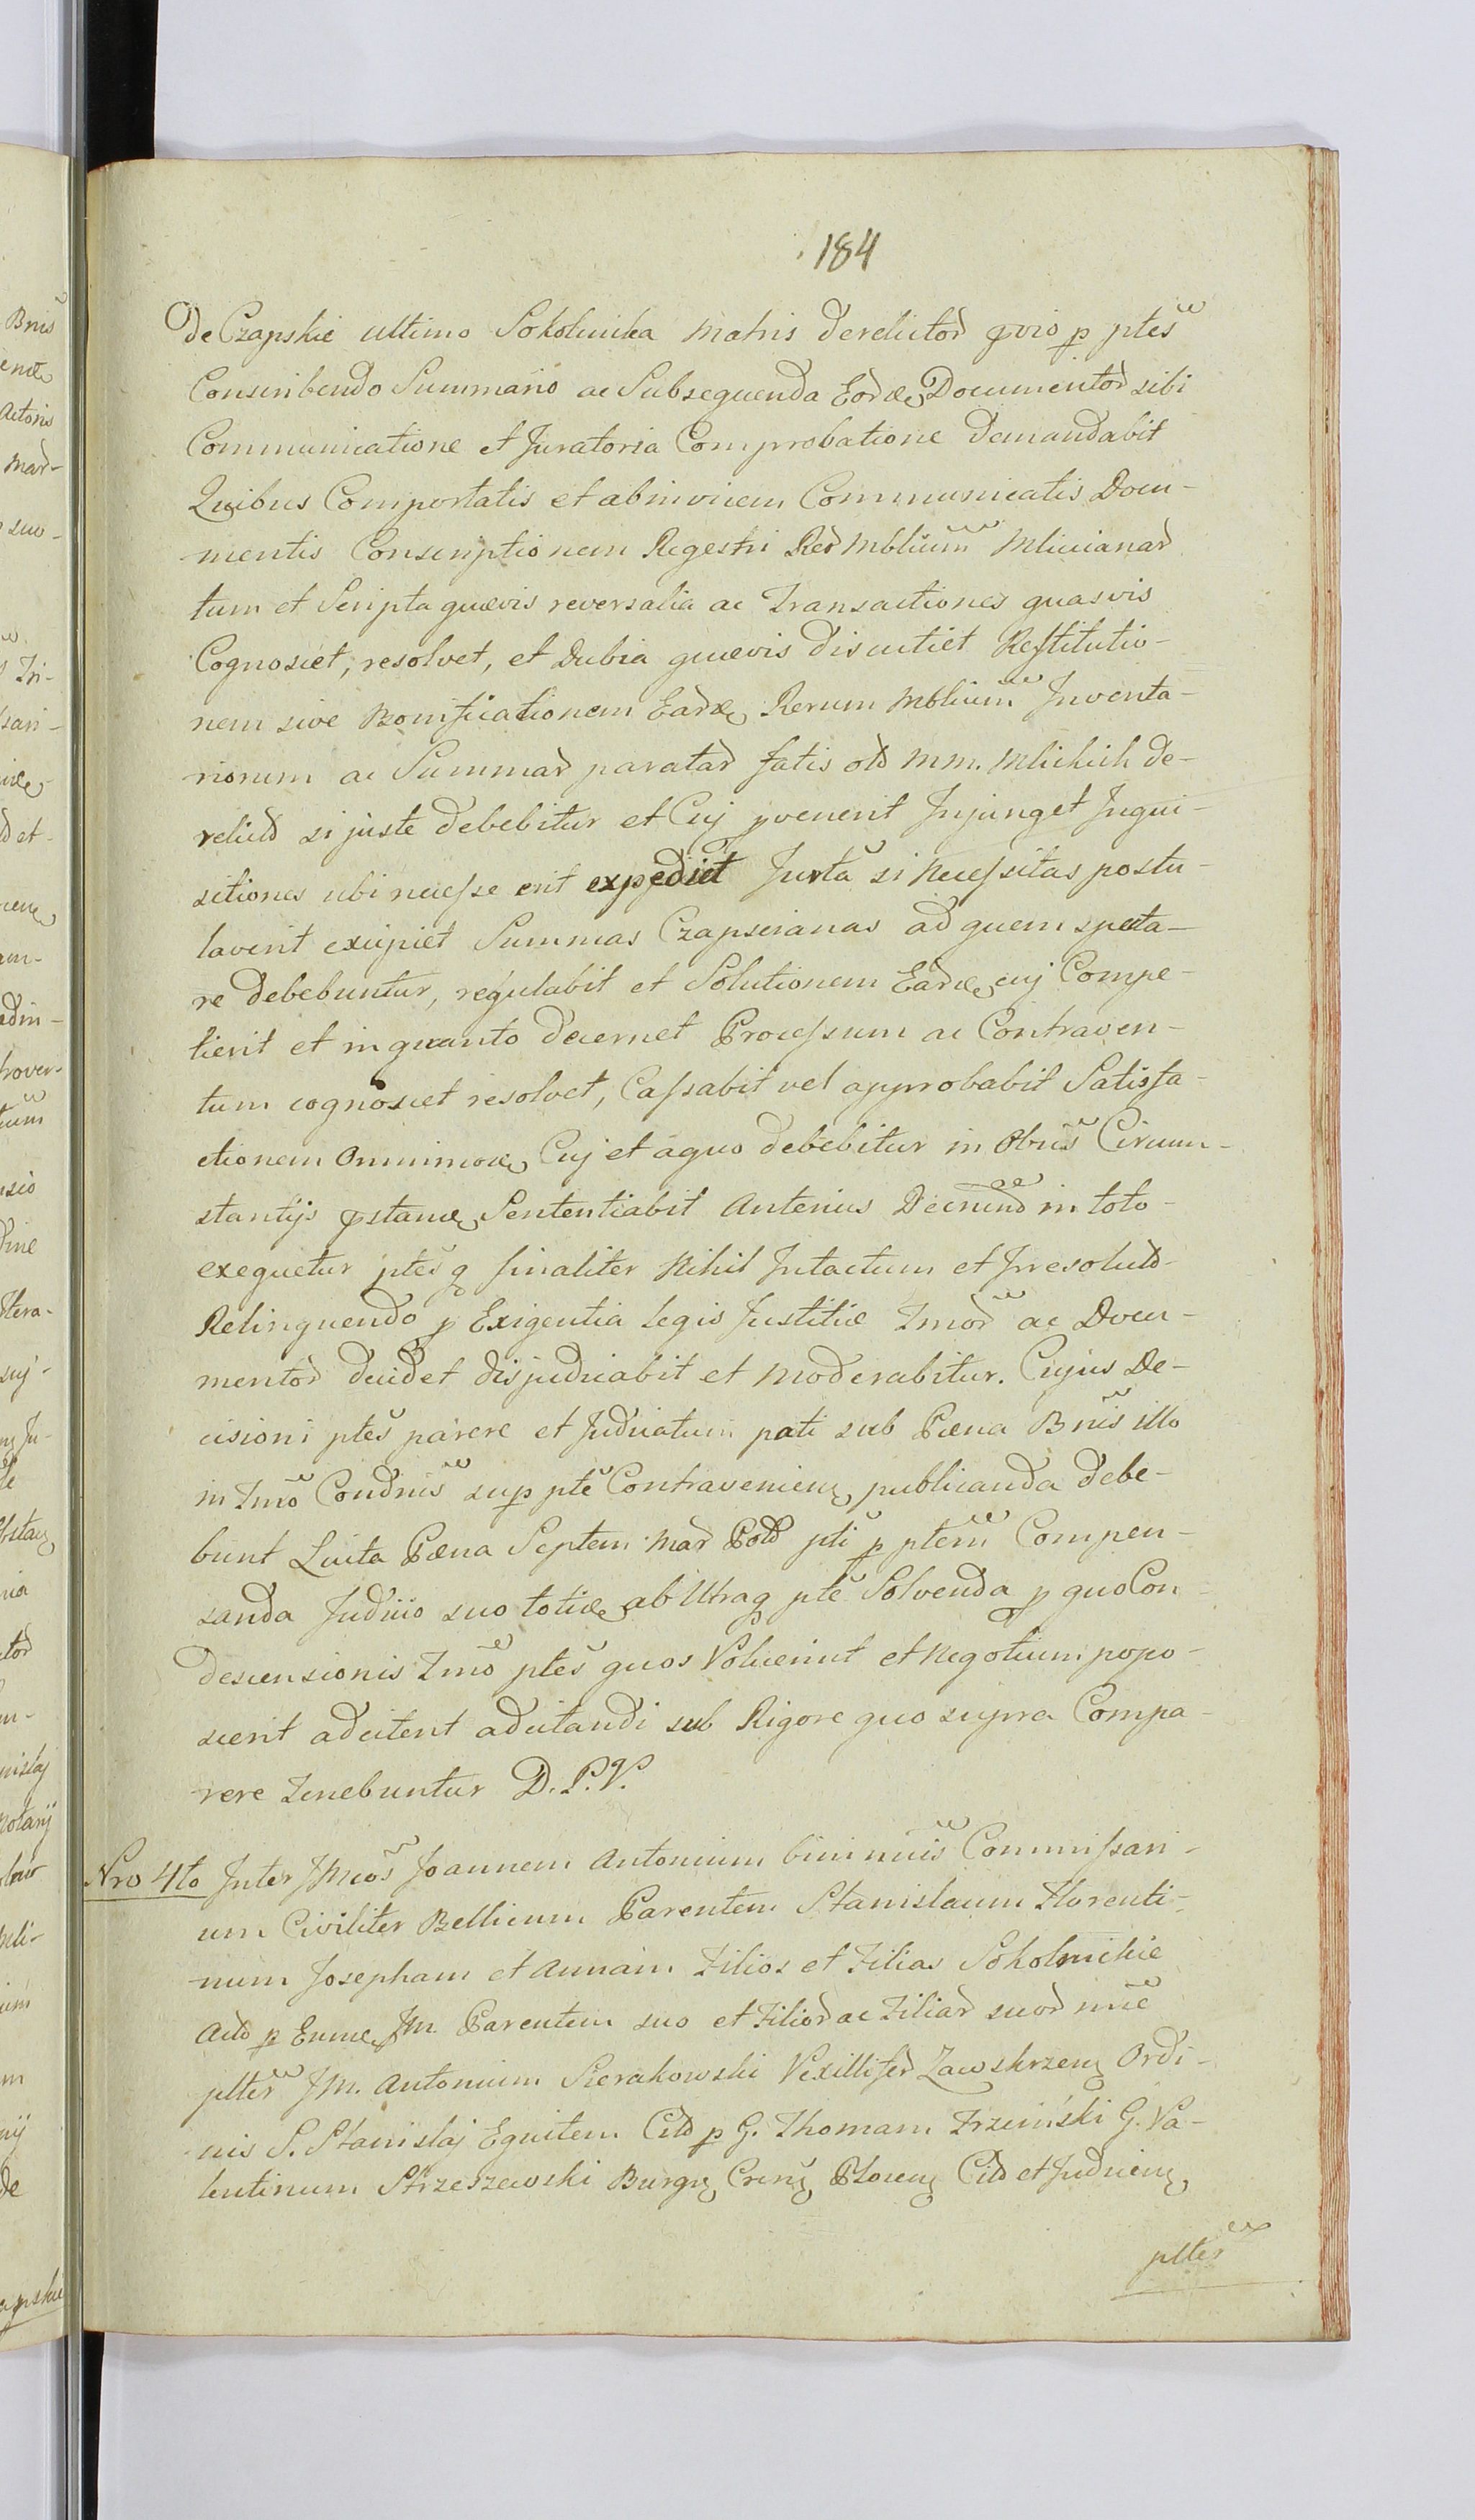 184
De Czapskie ultimo Sokolnicka Matris derelictoꝝ qvio p ptes
Conscribendo Summario ac Subsequenda Eorꝺꝫ Documentoꝝ sibi
Communicatione et Juratoria Comprobatione Demandabit
Quibus Comportatis et abinvicem Communicatis Docu-
mentis Conscriptionem Regestri Reꝝ Mblium Mlicianaꝝ
tum et Scripta quævis reversalia ac Transactiones quasvis
Cognoscet, resolvet, et Dubia quævis discutiet Restitutio-
nem sive Bonificationem Earꝺꝫ Rerum Mblium Inventa-
riorum ac Summaꝝ parataꝝ fatis olꝺ MM. Mlickich de-
relictꝺ si juste debebitur et Cuj pvenerit Injunget Inqui-
sitiones ubi necesse erit expediet Jurta si Necessitas postu-
laverit excipiet Summas Czapscianas ad quem specta-
re debebuntur, regulabit et Solutionem Earꝺꝫ cuj Compe-
tierit et in quanto decernet Processum ac Contraven-
tum cognoscet resolvet, Cassabit vel approbabit Satisfa-
ctionem Omnimoꝺꝫ Cuj et a quo debebitur in Obus Circum-
stantijs pstanꝫ Sententiabit Anterius Decretuꝺ in toto
exequetur ptesq finaliter Nihil Intactum et Irresolutꝺ
Relinquendo p Exigentia legis Justitiæ Tmoꝝ ac Docu-
mentoꝝ decidet disjudicabit et moderabitur. Cujus De-
cisioni ptes parere et Judicatum pati sub Pæna Bnis illo
in Tmo Condnis sup pte Contravenienꝫ publicanda debe-
bunt Luita Pæna Septem Mar Polꝺ pti p ptem Compen-
sanda Judicio suo totiꝫ ab Utraq pte Solvenda p quo Con
descensionis Tmo ptes quos Voluerint et Negotium popo-
scerit adcitent adcitandi sub Rigore quo supra Compa-
rere Tenebuntur D. P. V.
Nro 4to Inter JMcos Joannem Antonium binimius Commissari-
um Civiliter Bellicum Parentem Stanislaum Florenti-
num Josepham et Annam Filios et Filias Sokolnickie
Actꝺ p Eumꝫ JM. Parentem suo et Filioꝝ ac Filiaꝝ suoꝝ nme
pltes JM. Antonium Sierakowski Vexilliferꝺ Zawskrzenꝫ Ordi-
nis S. Stanislaj Equitem Citꝺ p G. Thomam Trzciński G. Va-
lentinum Strzeszewski Burgꝫ Crenꝫ Plocenꝫ Citꝺ et Judicienꝫ
pltes